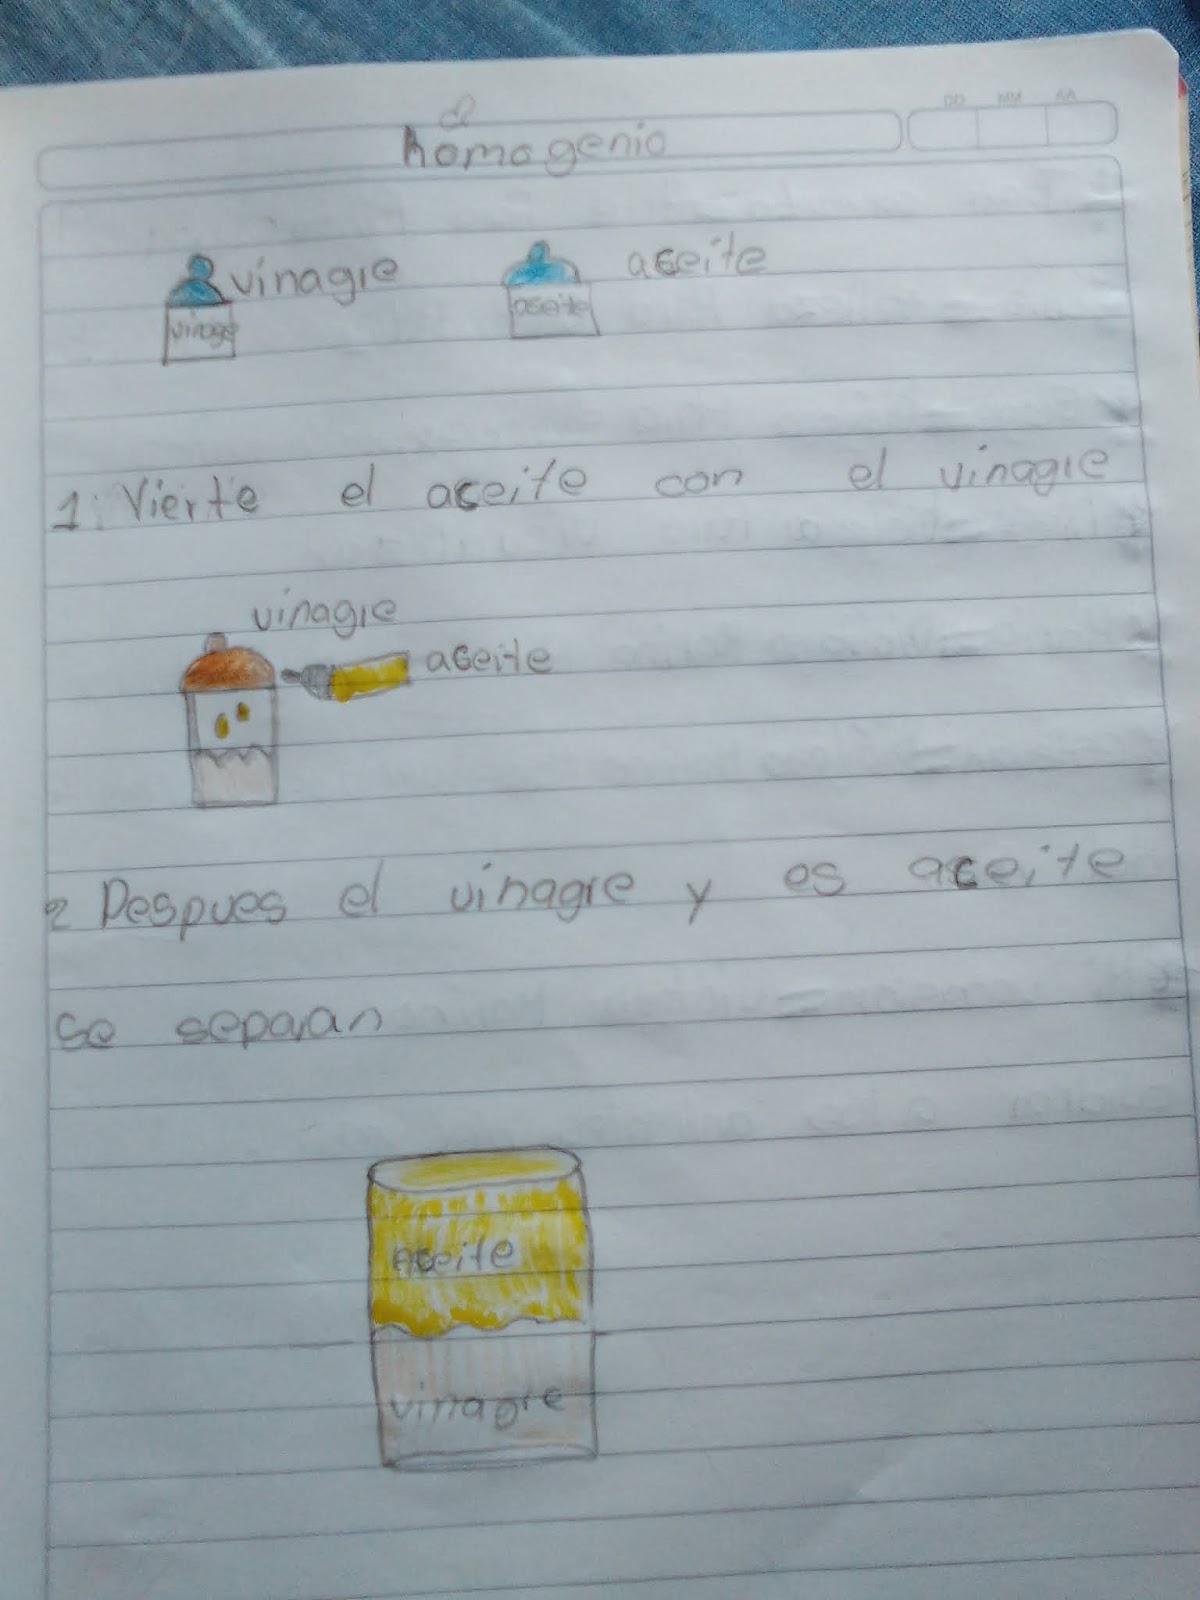 DD MM AA
homogenio
vinagre
aceite
vinagre
aceite
1. Vierte el aceite con el vinagre
vinagre
aceite
2 Despues el vinagre y es aceite
se separan
aceite
vinagre